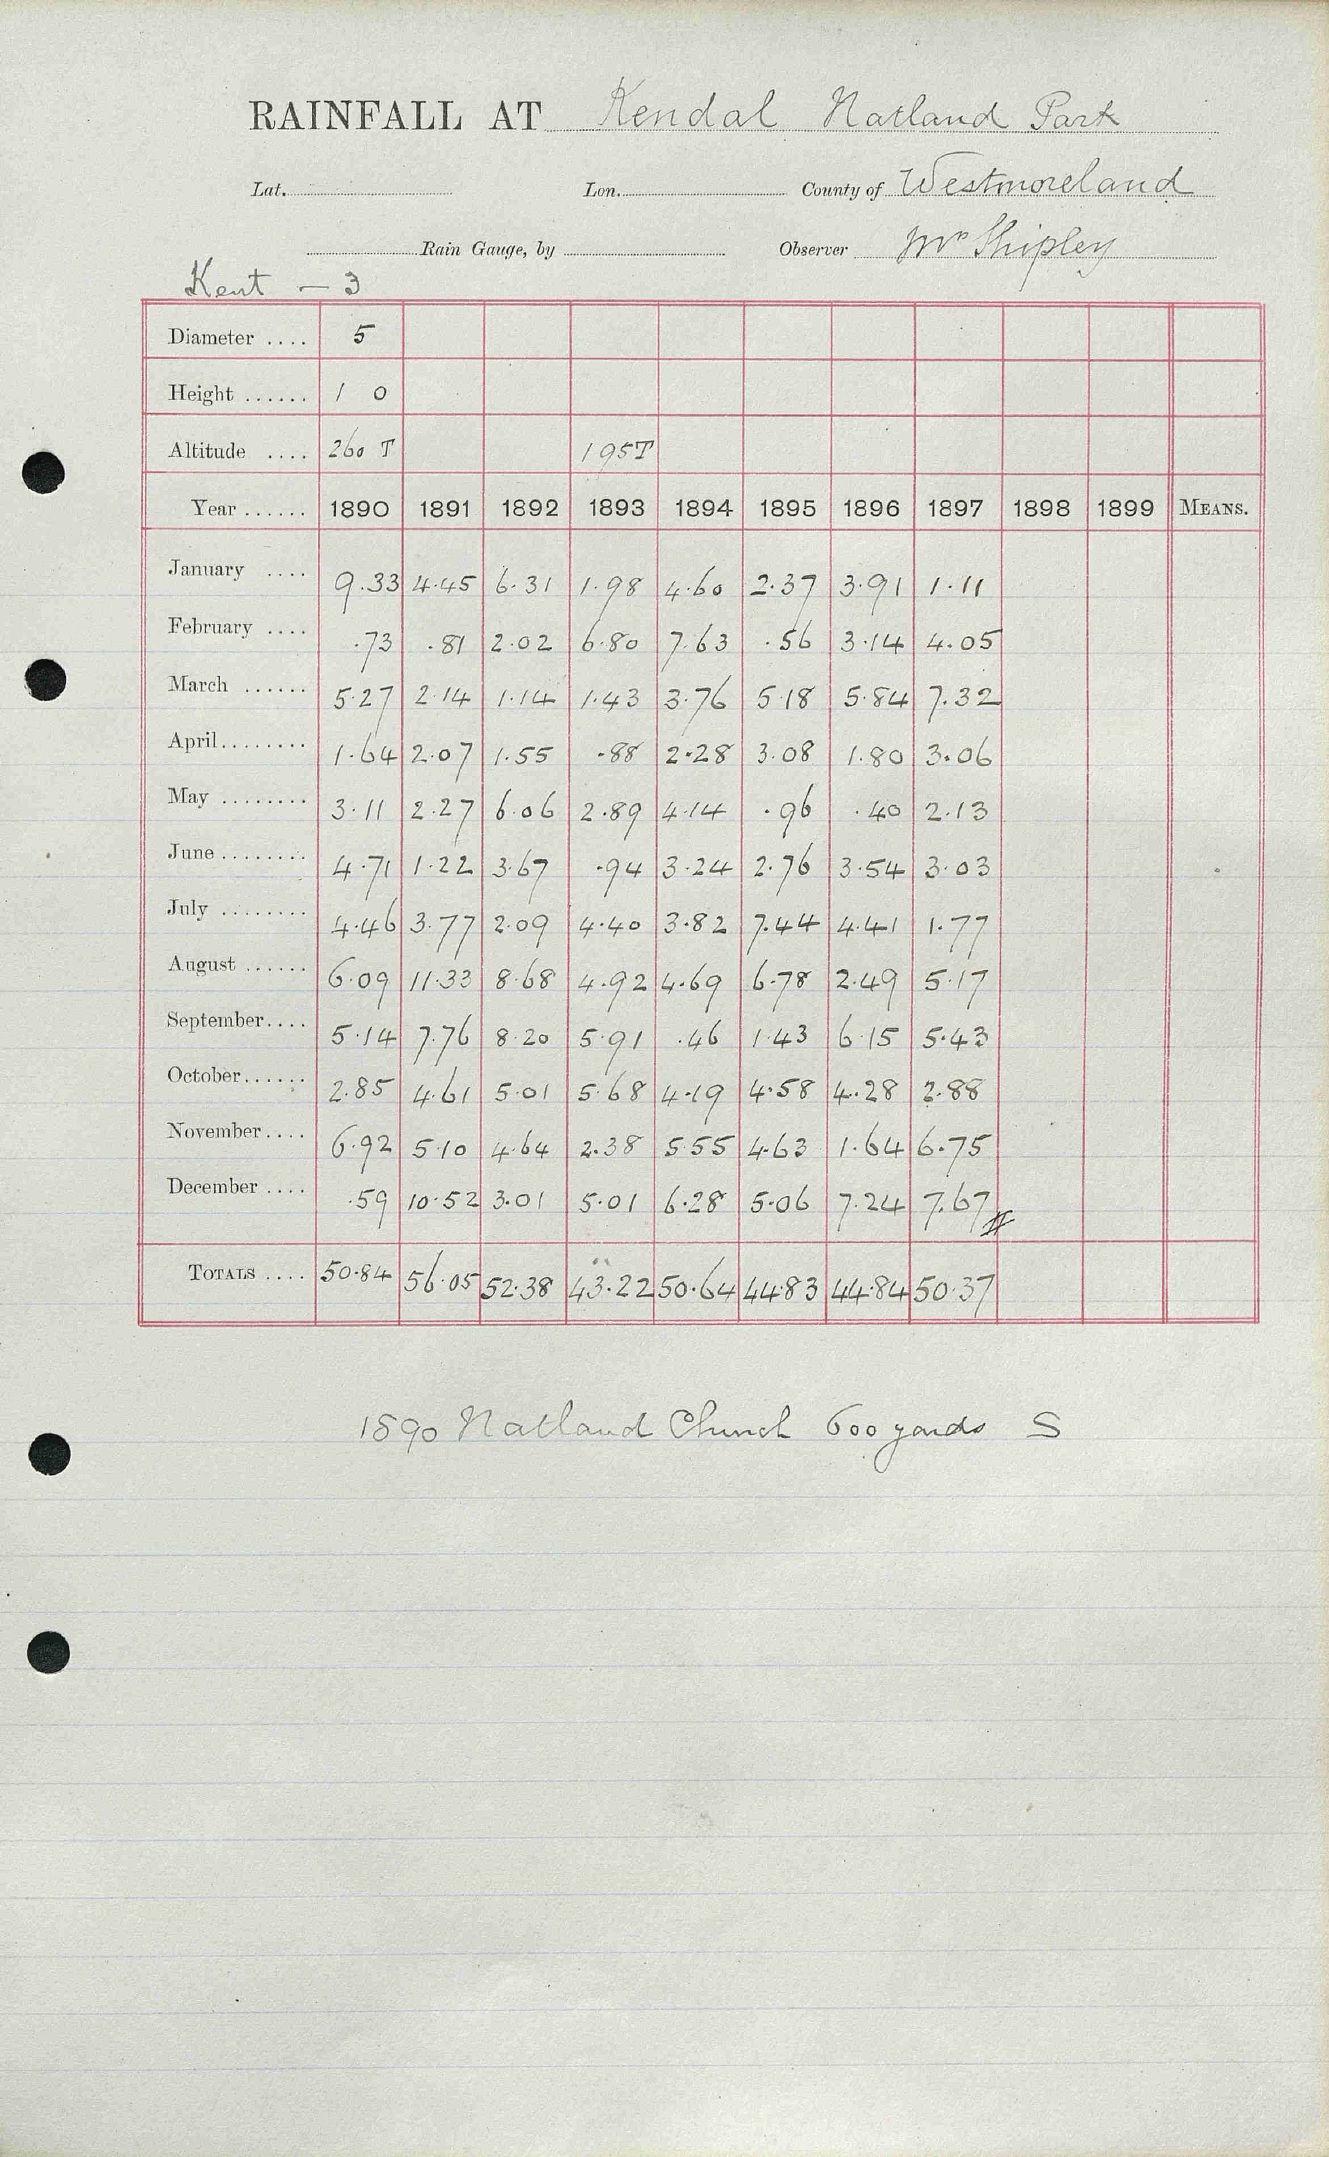 RAINFALL AT Kendal Natland Park
Lat. Lon. County of Westmoreland
Rain Gauge, by Observer Mr Shipley
Kent - 3
Diameter .... 5
Height ...... 1 0
Altitude .... 260 T 195T
Year ...... 1890 1891 1892 1893 1894 1895 1896 1897 1898 1899 MEANS.
January .... 9.33 4.45 6.31 1.98 4.60 2.37 3.91 1.11
February .... .73 .81 2.02 6.80 7.63 .56 3.14 4.05
March ...... 5.27 2.14 1.14 1.43 3.76 5.18 5.84 7.32
April........ 1.64 2.07 1.55 .88 2.28 3.08 1.80 3.06
May ........ 3.11 2.27 6.06 2.89 4.14 .96 .40 2.13
June ........ 4.71 1.22 3.67 .94 3.24 2.76 3.54 3.03
July ........ 4.46 3.77 2.09 4.40 3.82 7.44 4.41 1.77
August ...... 6.09 11.33 8.68 4.92 4.69 6.78 2.49 5.17
September.... 5.14 7.76 8.20 5.91 .46 1.43 6.15 5.43
October...... 2.85 4.61 5.01 5.68 4.19 4.58 4.28 2.88
November.... 6.92 5.10 4.64 2.38 5.55 4.63 1.64 6.75
December .... .59 10.52 3.01 5.01 6.28 5.06 7.24 7.67
TOTALS .... 50.84 56.05 52.38 43.22 50.64 44.83 44.84 50.37
1890 Natland Church 600 yards S